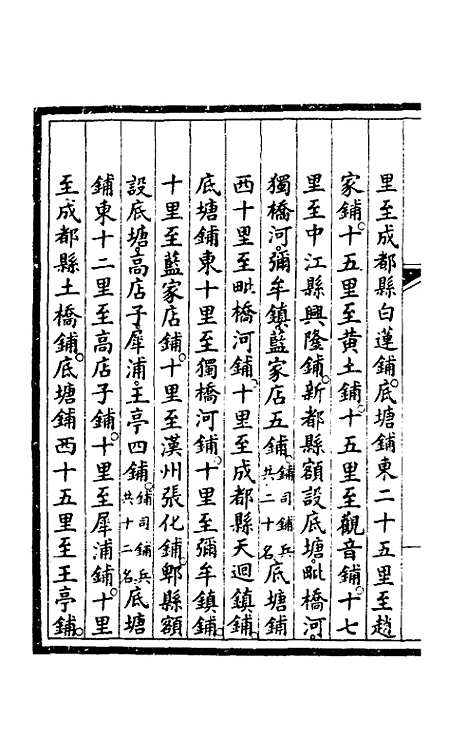 里至成都縣白蓮鋪。底塘鋪東二十五里至趙
家鋪。十五里至黄土鋪。十五里至觀音鋪。十七
里至中江縣興隆鋪。新都縣額設底塘。毗橋河。
獨橋河。彌牟鎮。藍家店五鋪。鋪司鋪兵共二十名。底塘鋪
西十里至毗橋河鋪。十里至成都縣天迴鎮鋪。
底塘鋪東十里至獨橋河鋪。十里至彌牟鎮鋪。
十里至藍家店鋪。十里至漢州張化鋪。郫縣額
設底塘。高店子。犀浦。王亭四鋪。鋪司鋪兵共十二名。底塘
鋪東十二里至高店子鋪。十里至犀浦鋪。十里
至成都縣土橋鋪。底塘鋪西十五里至王亭鋪。